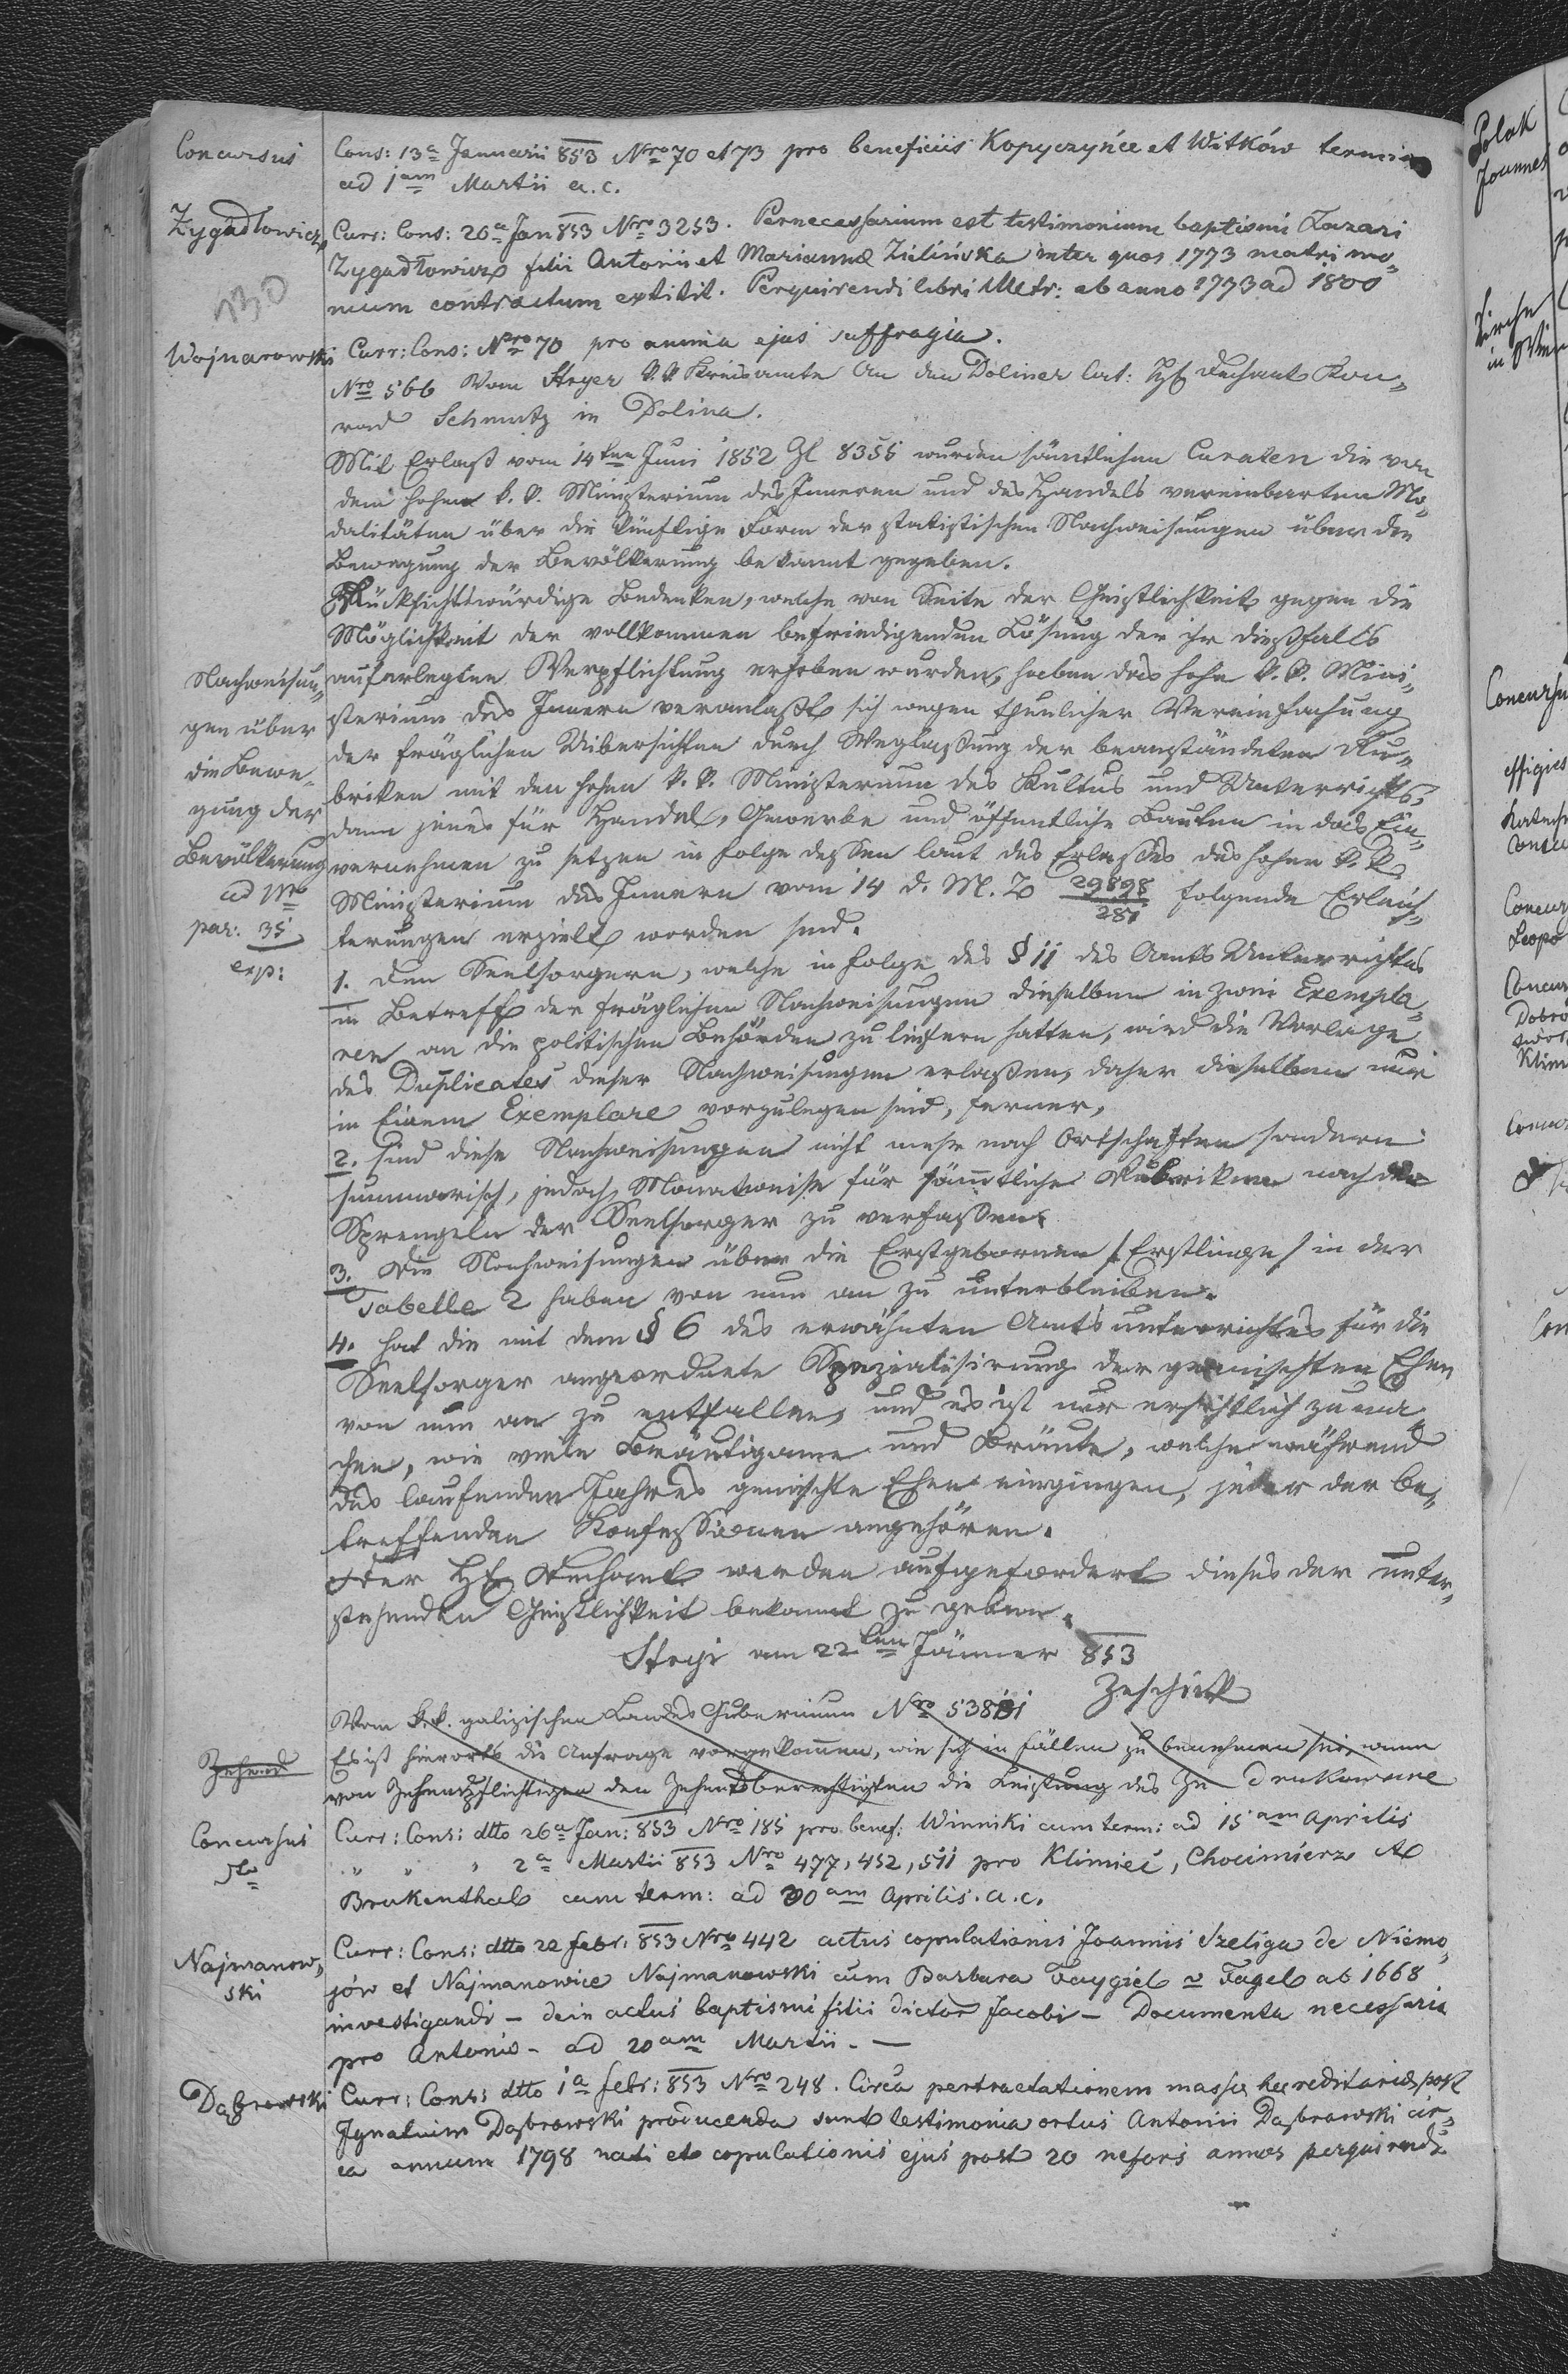 Concursus
Cons: 13a Januarii 853 Nro 70 et 73 pro beneficiis Kopyczyńce et Witków termin
ad 1am Martii a. c.
Zygadłowicz
Curr: Cons: 20a Jan 853 Nro 3253. Pernecessarium est testimonium baptismi Lazari
Zygadłowicz filii Antonii et Mariannæ Zielińska inter quos 1773 matrimo„
nium contractum extitit. Perquirendi libri Metr: ab anno 1773 ad 1800
730
Wojnarowski
Curr: Cons: Nro 70 pro anima ejus suffragia.
Nro 566 Vom Stryer k.k. Kreisamte An den Doliner lat: H. Dechant Kon„
rad Schmutz in Dolina.
Mit Erlaß vom 14ten Juni 1852 Zl 8355 wurden sämtlichen Curaten die von
dem hohen k. k. Ministerium des Inneren und des Handels vereinbarten Mo„
dalitäten über die künftige Form der statistischen Nachweisungen über die
Bewegung der Bevölkerung bekannt gegeben.
Rücksichtswürdige Bedenken, welche von Seite der Geistlichkeit gegen die
Möglichkeit der vollkommen befriedigenden Lösung der ihr dießfalls
Nachweisun„
gen über
die Bewe„
gung der
Bevölkerung
ad Nro
par: 35
exp:
auferlegten Verpflichtung erhoben wurden, haben das hohe k. k. Mini„
sterium des Innern veranlaßt sich wegen thunlicher Vereinfachung
der fräglichen Uibersichten durch Weglaßung der beanständeten Ru„
briken mit den hohen k. k. Ministerium des Kultus und Unterrichts,
dann jenes für Handel, Gewerbe und öffentliche Bauten in das Ein„
vernehmen zu setzen in Folge dessen laut des Erlaßes des hohen k. k.
Ministerium des Innern vom 14 d. M. Z 29898/287 folgende Erleich„
terungen erzielt worden sind.
1. Den Seelsorgern, welche in Folge des § 11 des Amts Unterrichtes
in Betreff der fräglichen Nachweisungen dieselben in zwei Exempla„
ren an die politischen Behörden zu liefern hatten, wird die Vorlage
des Duplicates dieser Nachweisungen erlaßen, daher dieselben nur
in Einem Exemplare vorzulegen sind, ferner,
2. sind diese Nachweisungen nicht mehr nach Ortschaften sondern
summarisch, jedoch Monatweise für sämtliche Rubriken nach den
Sprengeln der Seelsorger zu verfaßen.
3. Die Nachweisungen über die Erstgebornen /:Erstlinge/ in der
Tabelle 2 haben von nun an zu unterbleiben.
4. hat die mit dem § 6 des erwähnten Amtsunterrichtes für die
Seelsorger angeordnete Spezialisirung der gemischten Ehen
von nun an zu entfallen, und es ist nur ersichtlich zu ma
chen, wie viele Bräutigame und Bräute, welche während
des laufenden Jahres gemischte Ehen eingingen, jeder der be„
treffenden Konfessionen angehören.
Der H. Dechant werden aufgefordert dieses der unter„
stehenden Geistlichkeit bekannt zu geben.
Stryi am 22ten Jänner 853
Vom k.k. galizischen Landes Gubernium Nro
Zehend
Es ist hierorts die Anfrage vorgekommen, wie sich in Fällen zu benehmen sei, wenn
von Zehendpflichtigen den Zehendberechtigten die Leistung des Ze drukowane
Concursus
Curr: Cons: dtto 26a Jan: 853 Nro 185 pro benef: Winniki cum term: ad 15am Aprilis
„ „ „ 2a Martii 853 Nro 477, 452, 511 pro Klimiec, Chocimierz et
Brukenthal cum term: ad 30am Aprilis. a. c.
Najmanow„
ski
Curr: Cons: dtto 22 Febr: 853 Nro 442 actus copulationis Joannis Szeliga de Niemo„
jów et Najmanowice Najmanowski cum Barbara Faygiel v Fagel ab 1668
investigandi – dein actus baptismi filii dictor Jacobi – Documenta necessaria
pro Antonio – ad 20am Martii. –
Dąbrowski
Curr: Cons: dtto 1a Febr: 853 Nro 248. Circa pertractationem massæ hæreditariæ post
Ignatium Dąbrowski producenda sunt testimonia ortus Antonii Dąbrowski cir„
ca annum 1798 nati et copulationis ejus post 20 nefors annos perquirendi
Polak
Joannes
Kirche
Concursu
effigies